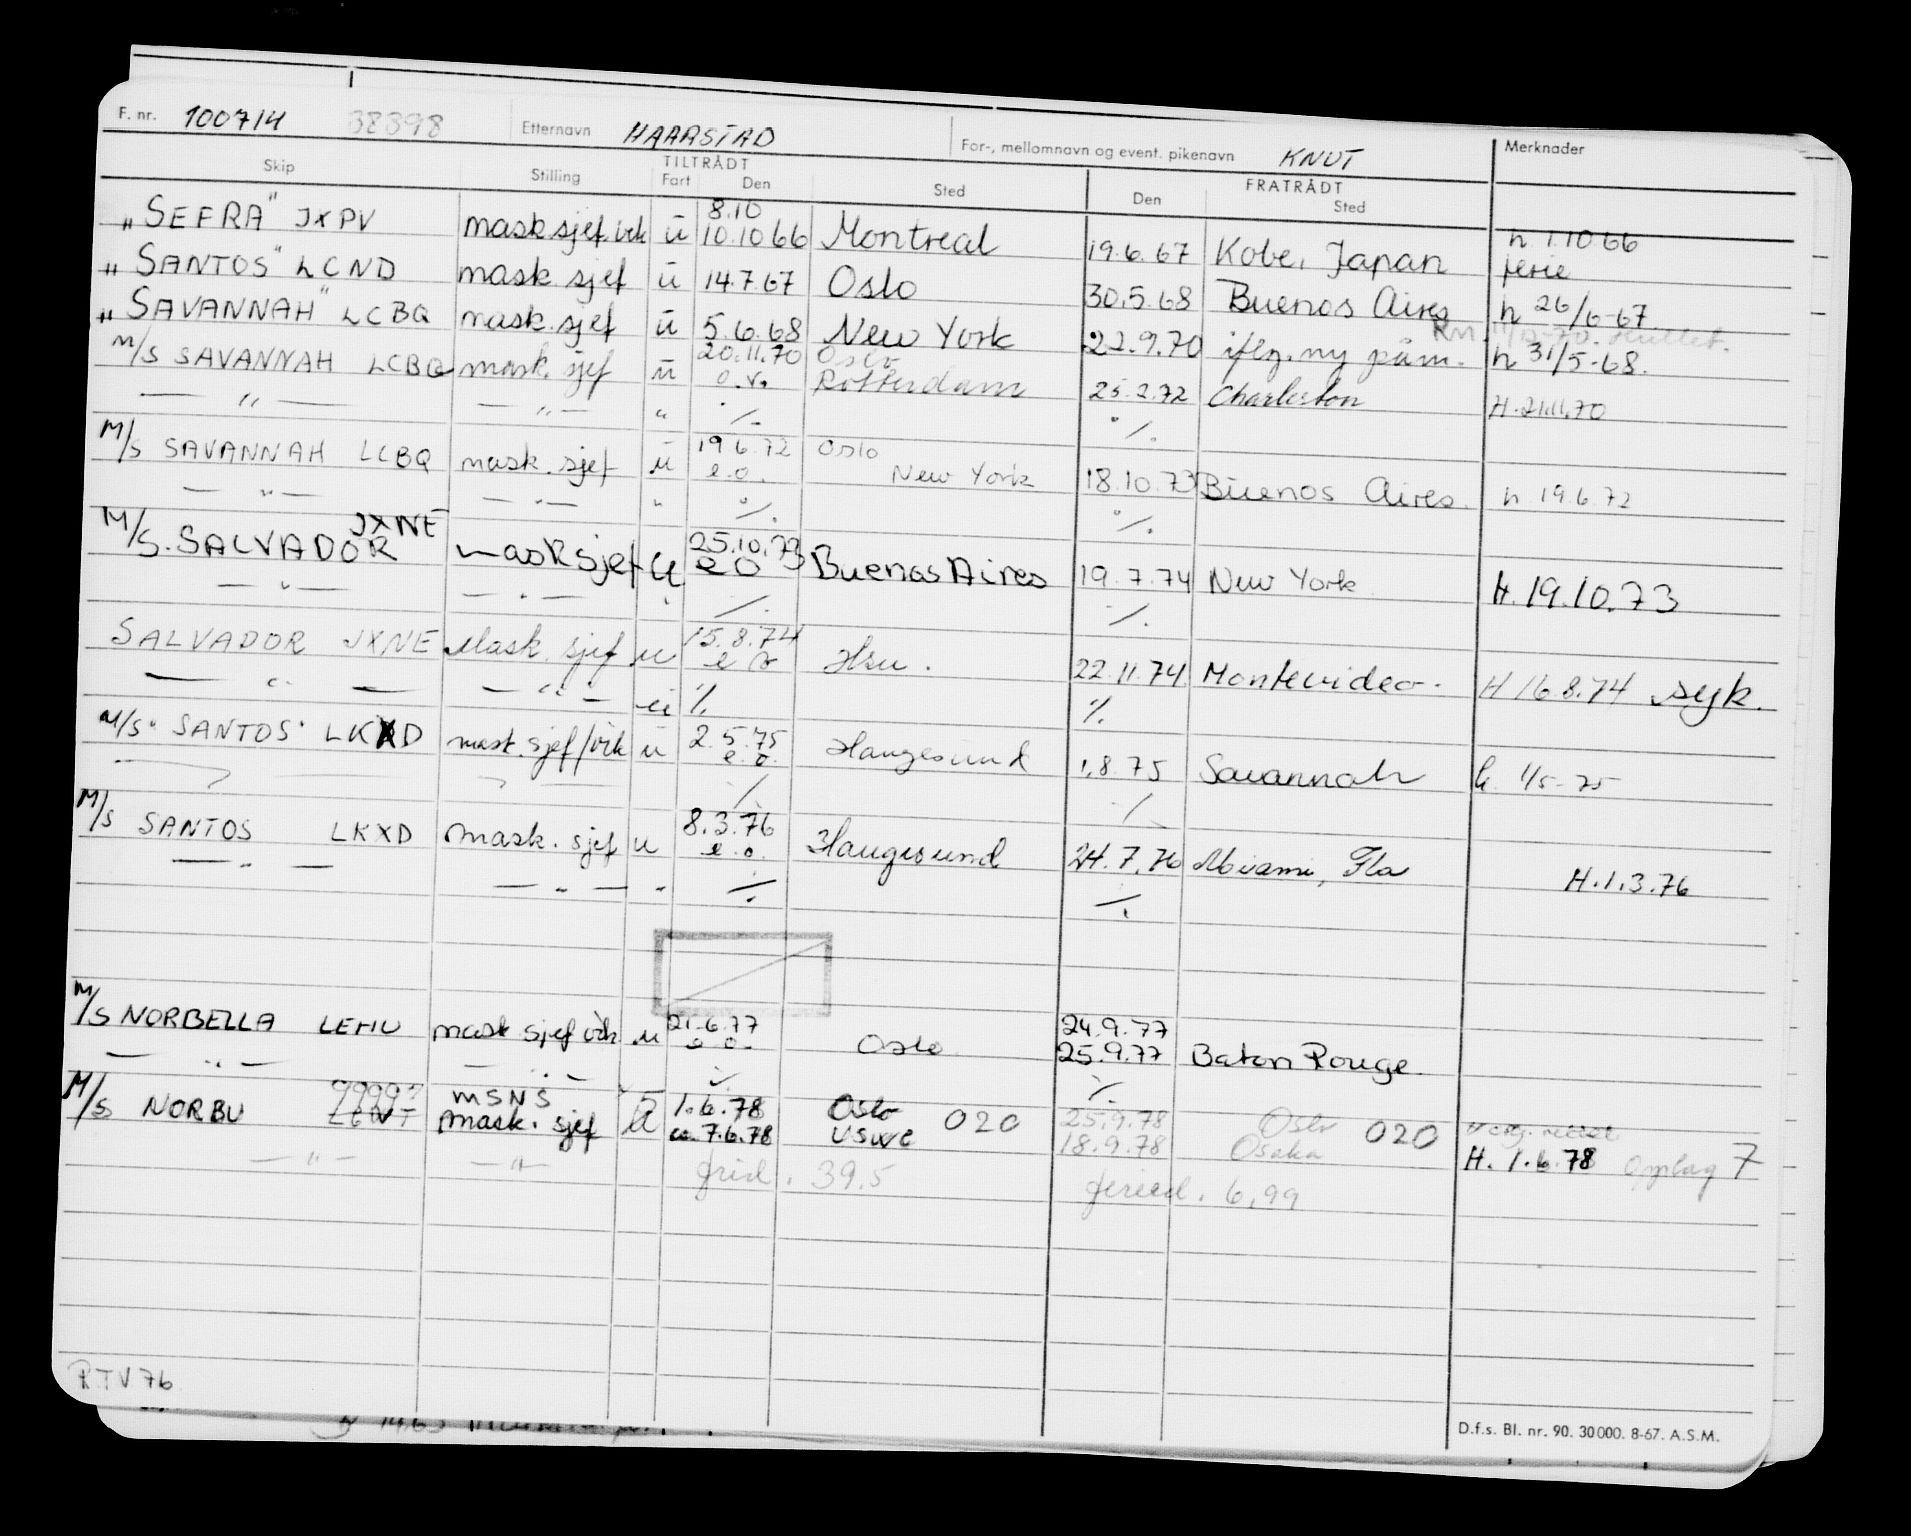 F. nr. 100714 38398 Etternavn HAARSTAD For-, mellomnavn og event. pikenavn KNUT Merknader
Skip Stilling TILTRÅDT Fart Den Sted FRATRÅDT Den Sted
"SEFRA" JXPV mask sjef. vik ū 8.10 10.10 66 Montreal 19.6.67 Kobe, Japan h 1.10 66
"SANTOS" LCND mask sjef ū 14.7.67 Oslo 30.5.68 Buenos Aires ferie h 26/6-67.
"SAVANNAH" LCBQ mask. sjef ū 5.6.68 New York 22.9.70 iflg. ny påm. h 31/5-68.
M/S SAVANNAH LCBQ mask. sjef ū 20.11.70 Oslo
Rotterdam 25.2.72 Charleston H. 21.11.70
— " — — " — " ·/. ·/.
M/S SAVANNAH LCBQ mask. sjef u 19 6.72 Oslo
e.o. New York 18.10.73 Buenos Aires. h. 19.6.72
— " — — " — " ·/. ·/.
M/S. SALVADOR JXNE mask sjef u 25.10.73
e o Buenos Aires 19.7.74 New York H. 19.10.73
— " — — " — " ·/. ·/.
SALVADOR JXNE Mask. sjef u 15.8.74 Hsu. 22.11.74 Montevideo. H 16.8.74 syk.
— " — — " — ·/. ·/.
M/S "SANTOS" LKXD mask. sjef/vik u 2.5.75
e.o. Haugesund 1.8.75 Savannah h 1/5-75
·/. ·/.
M/S SANTOS LKXD mask. sjef u 8.3.76
e.o. Haugesund 24.7.76 Miami, Fla H.1.3.76
— " — — " — " ·/. ·/.
M/S NORBELLA mask sjef vik u 21.6.77 24.9.77
e o. Oslo 25.9.77 Baton Rouge.
— " — — " — ·/. ·/.
M/S NORBU MSNS 1.6.78 Oslo 020 25.9.78 Oslo 020
mask. sjef u 7.6.78 USWC 18.9.78 Osaka H. 1.6.78 Opplag 7
— " — — " — frid. 39.5 feried. 6,99
RTV 76
D.f.s. Bl. nr. 90. 30 000. 8-67. A.S.M.